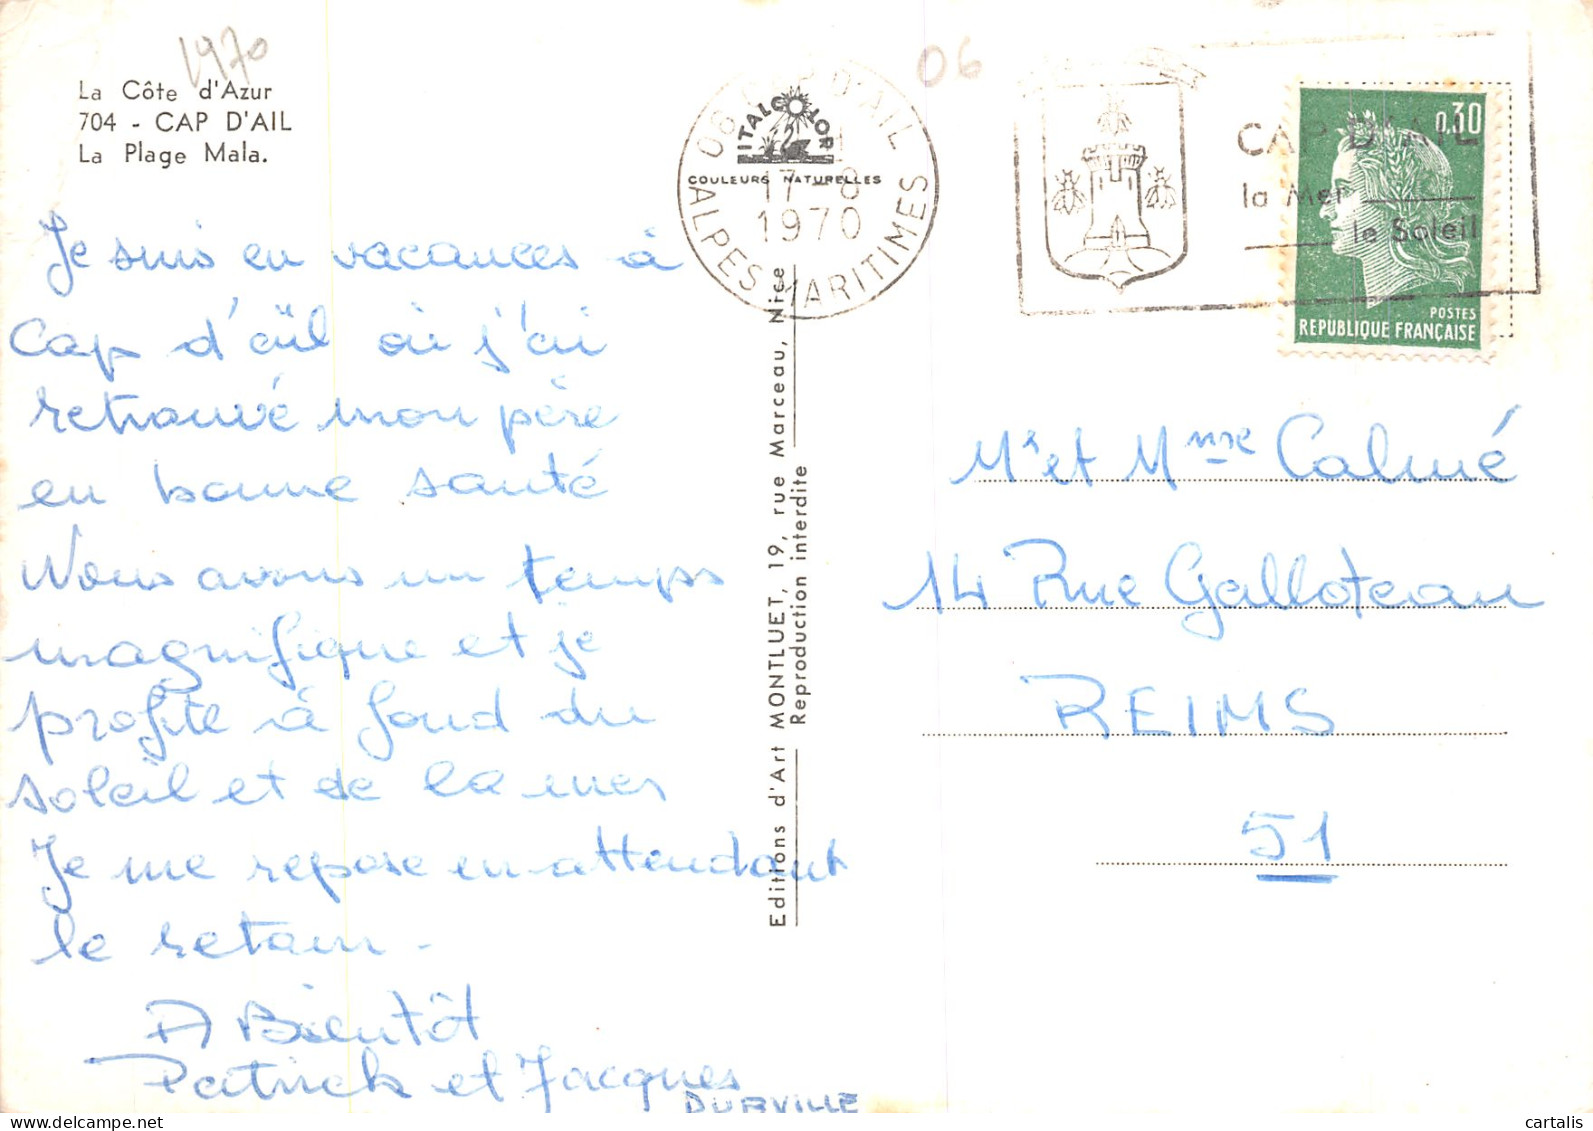 1970
06
La Côte d'Azur
704 - CAP D'AIL
La Plage Mala.
06 CAP D'AIL
17-8
1970
ALPES MARITIMES
ITALCOLOR
COULEURS NATURELLES
CAP D'AIL
la Mer
le Soleil
0,30
POSTES
REPUBLIQUE FRANÇAISE
Je suis en vacances à
Cap d'ail où j'ai
retrouvé mon père
en bonne santé
Nous avons un temps
magnifique et je
profite à fond du
soleil et de la mer
Je me repose en attendant
le retour -
A Bientôt
Patrick et Jacques
DURVILLE
Editions d'Art MONTLUET, 19, rue Marceau, Nice
Reproduction interdite
Mr et Mme Calmé
14 Rue Galloteau
REIMS
51
delcampe.net
cartalis